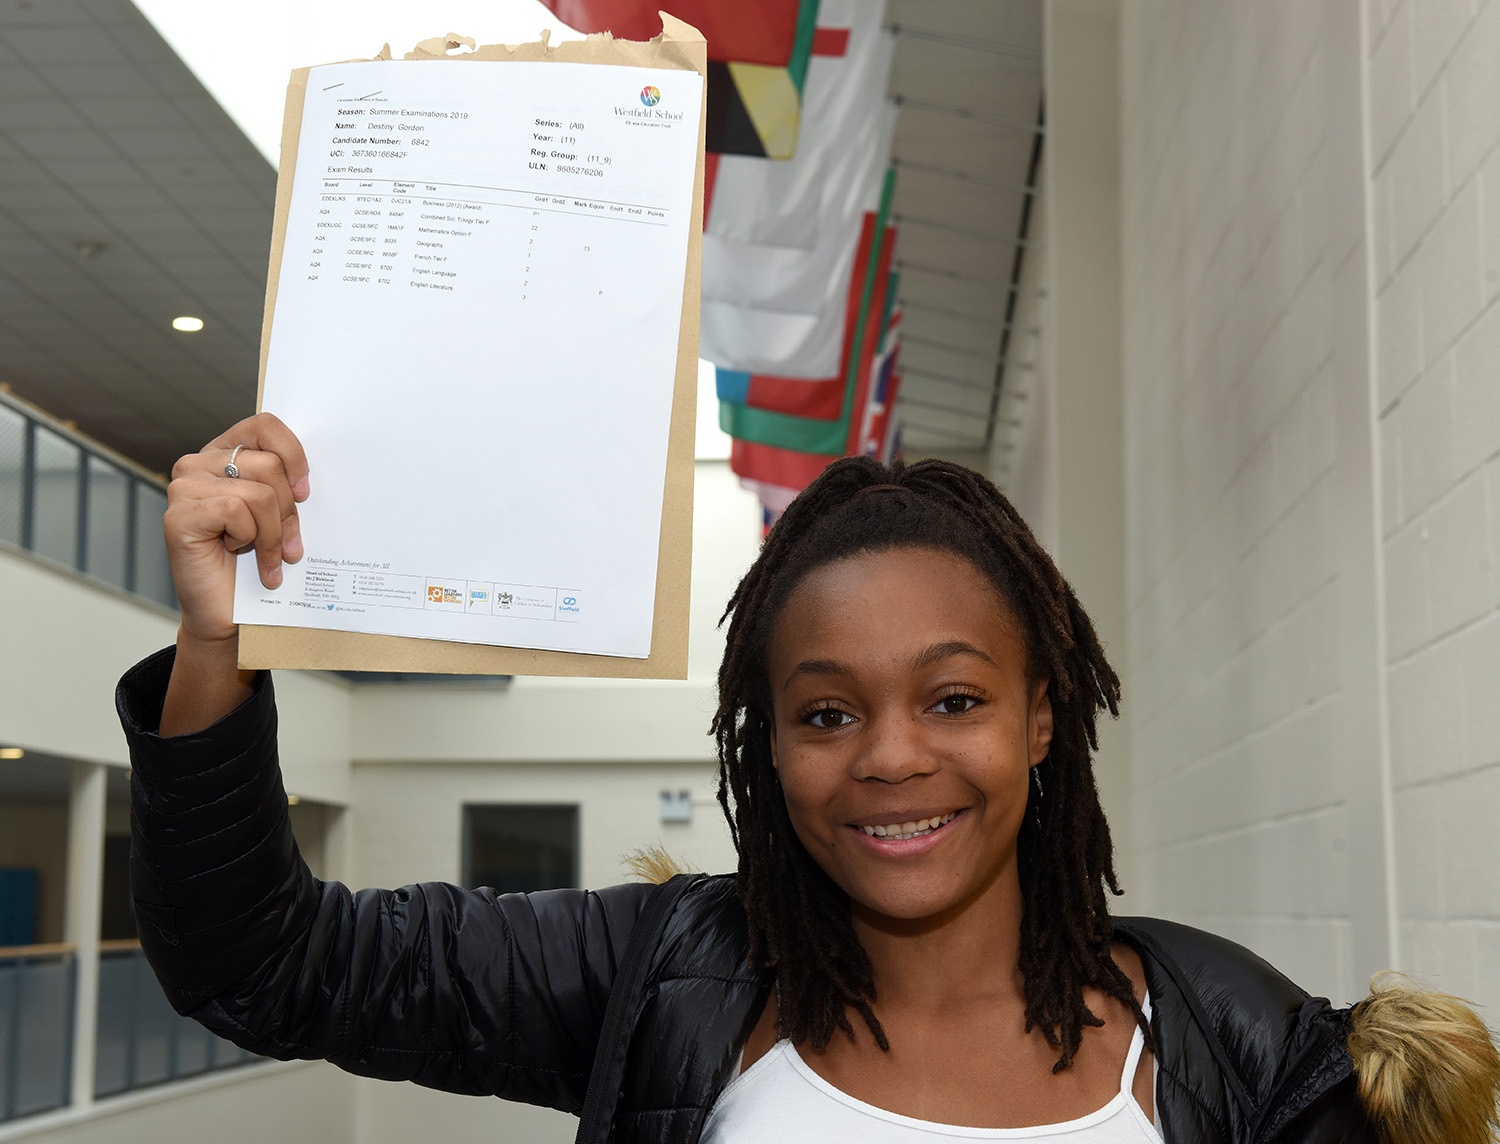 Candidate Statement of Results
Westfield School
Season: Summer Examinations 2019
Series: (All)
Name: Destiny Gordon
Year: (11)
Candidate Number: 6842
Reg. Group: (11_9)
UCI: 367360166842F
ULN: 8605276206
Exam Results
Board Level Element Code Title Grd1 Grd2 Mark Equiv End1 End2 Points
EDEXL/KS BTEC/1A2 DJC21A Business (2012) (Award) P1
AQA GCSE/9DA 8464F Combined Sci: Trilogy Tier F 22
EDEXL/GC GCSE/9FC 1MA1F Mathematics Option F 2 73
AQA GCSE/9FC 8035 Geography 1
AQA GCSE/9FC 8658F French Tier F 2
AQA GCSE/9FC 8700 English Language 2 P
AQA GCSE/9FC 8702 English Literature 3
Outstanding Achievement for All
Head of School:
Westfield School
Eckington Road
Sheffield
Printed On
Sheffield